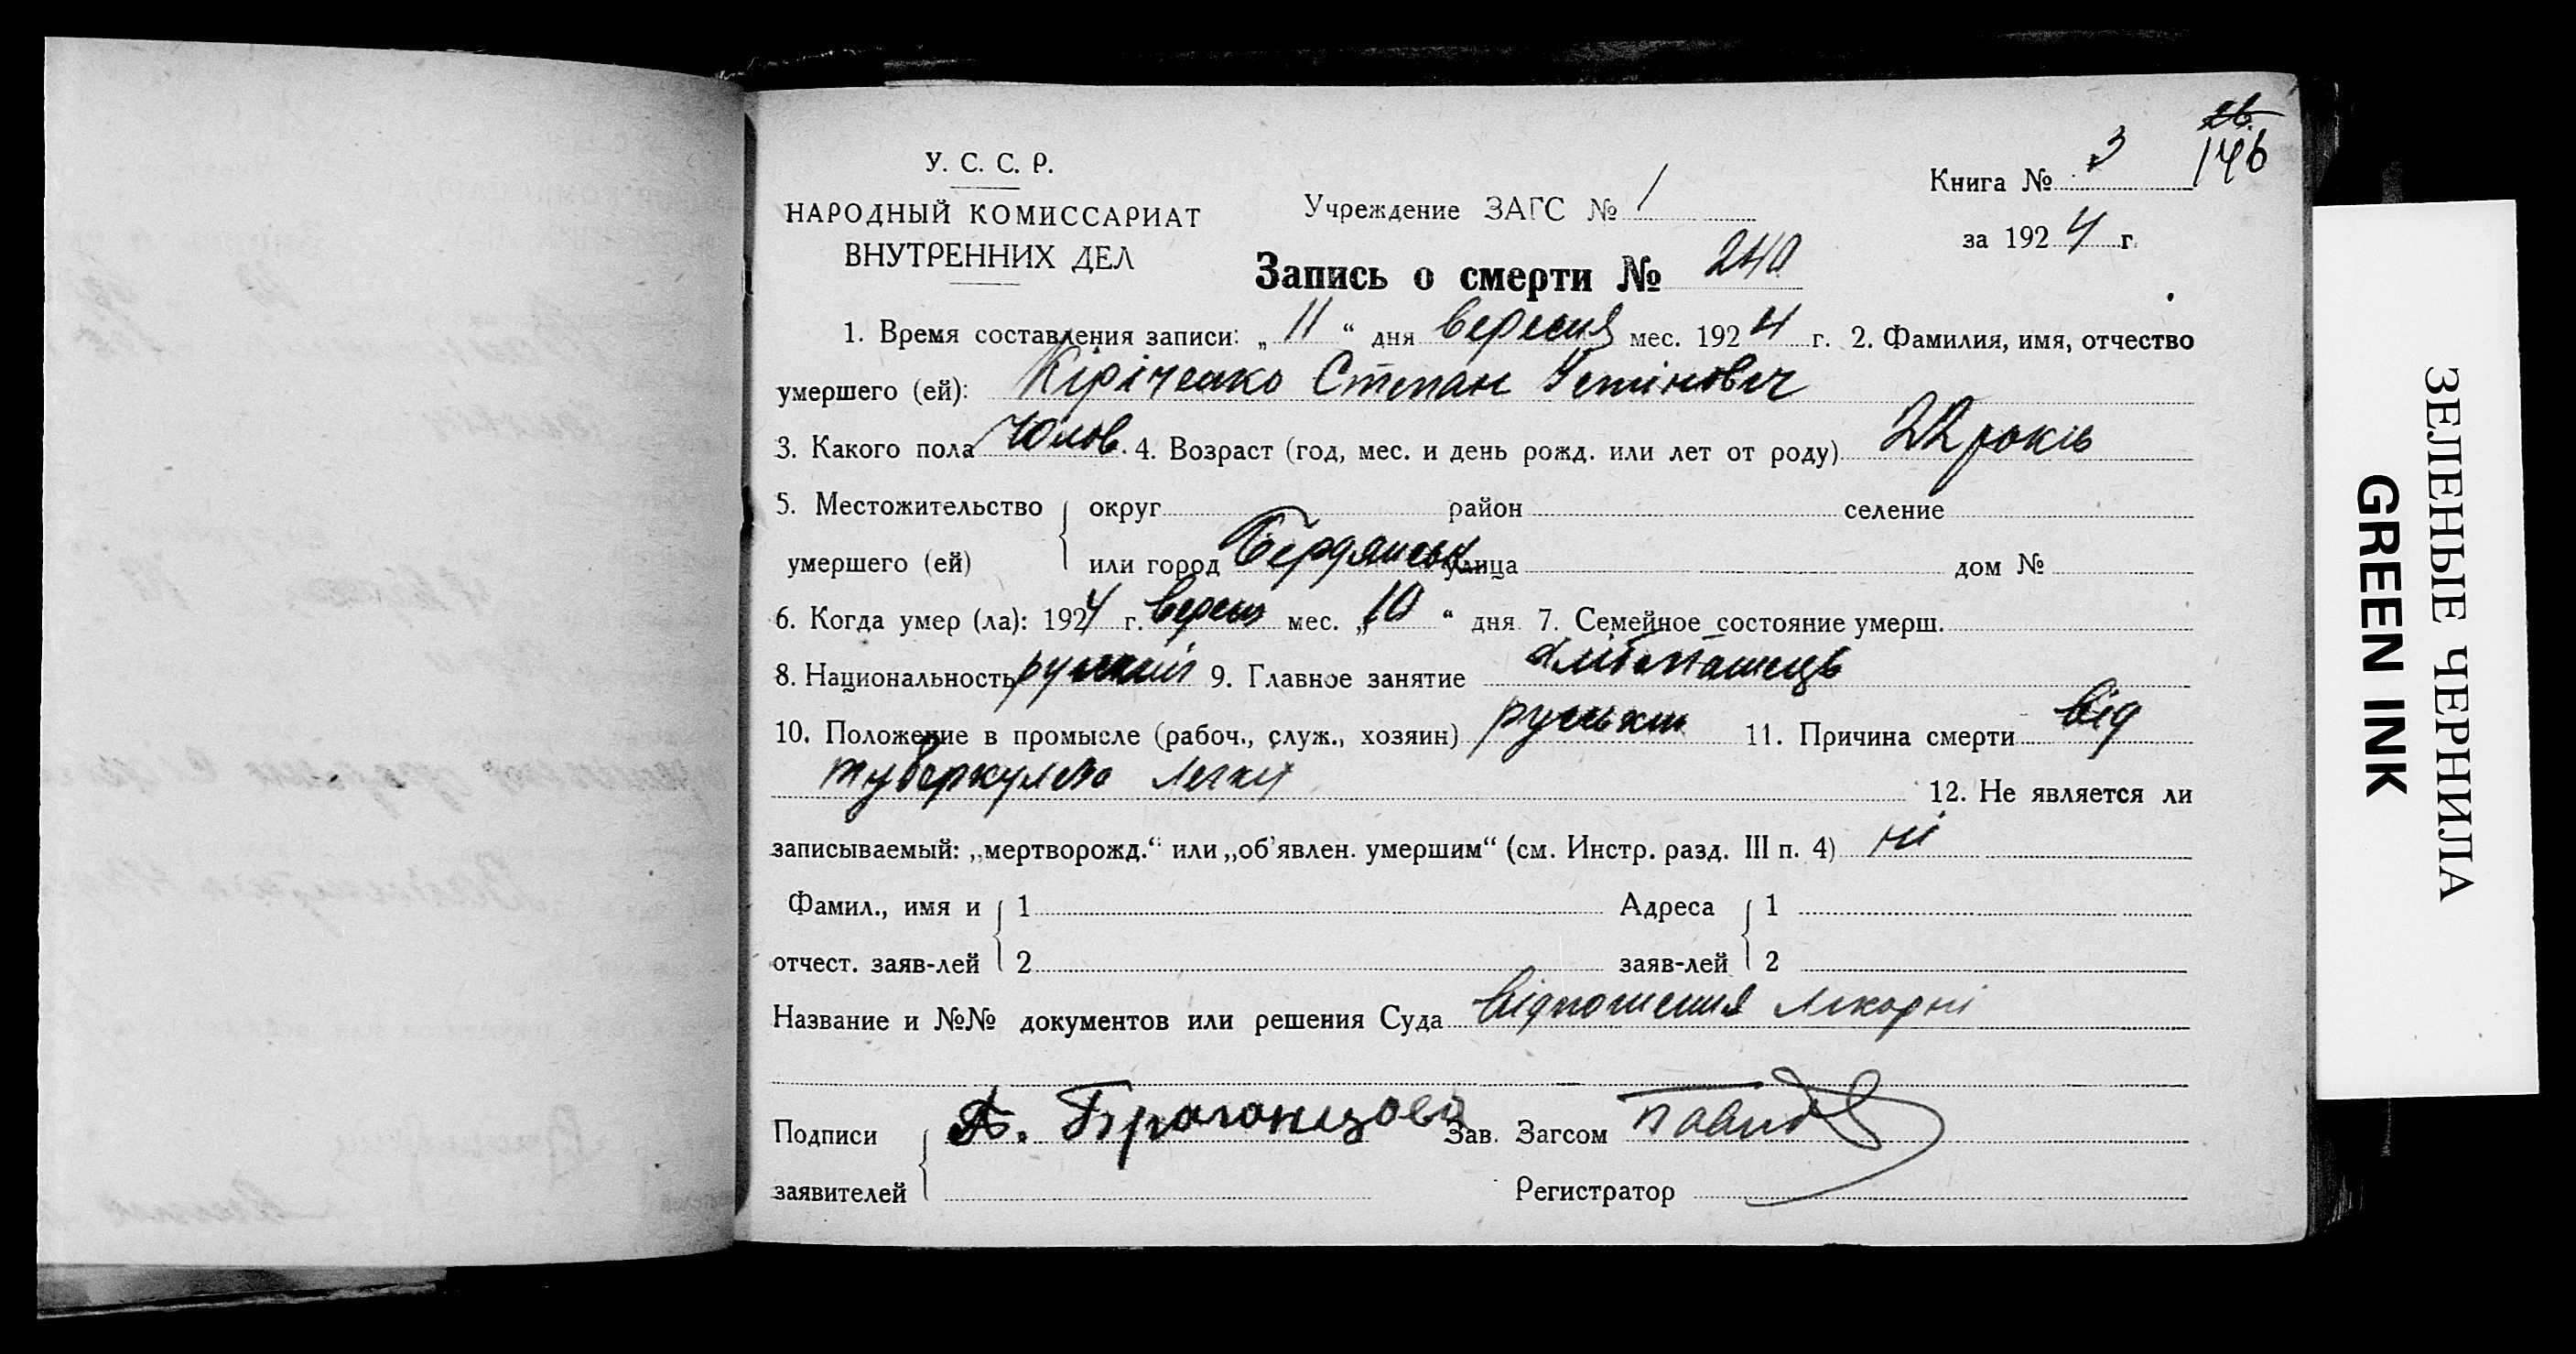 26.
146
У. С. С. Р.
НАРОДНЫЙ КОМИССАРИАТ
ВНУТРЕННИХ ДЕЛ
Учреждение ЗАГС № 1
Книга № 3
за 1924 г.
Запись о смерти № 240
1. Время составления записи: „ 11 “ дня вересня мес. 1924 г. 2. Фамилия, имя, отчество
умершего (ей): Кіріченко Степан Устінович
3. Какого пола Чолов. 4. Возраст (год, мес. и день рожд. или лет от роду) 22 років
5. Местожительство округ район селение
умершего (ей) или город Бердянськ улица дом №
6. Когда умер (ла): 1924 г. вересня мес. „ 10 “ дня 7. Семейное состояние умерш.
8. Национальность 9. Главное занятие
10. Положение в промысле (рабоч., служ., хозяин) 11. Причина смерти від
туберкульоза легких 12. Не является ли
записываемый: „мертворожд.“ или „об'явлен. умершим“ (см. Инстр. разд. III п. 4) ні
Фамил., имя и 1 Адреса 1
отчест. заяв-лей 2 заяв-лей 2
Название и №№ документов или решения Суда відношення лікарні
Подписи А. Зав. Загсом
заявителей Регистратор
ЗЕЛЕНЫЕ ЧЕРНИЛА
GREEN INK